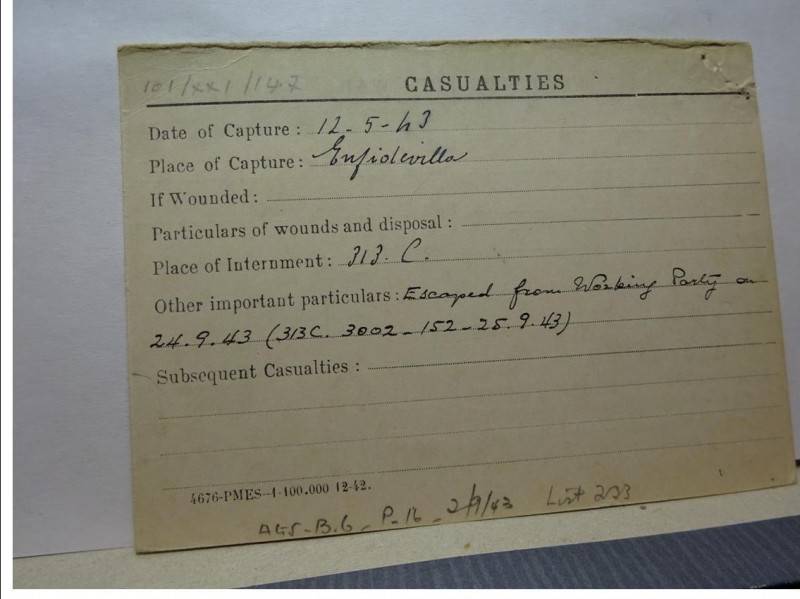 101/xx1/147
CASUALTIES
Date of Capture: 12-5-43
Place of Capture: Enfideville
If Wounded:
Particulars of wounds and disposal:
Place of Internment: 313. C.
Other important particulars: Escaped from Working Party on
24.9.43 (313C. 3002-152-25.9.43)
Subsequent Casualties:
4676-PMES-1-100.000 12-42.
P-16 - 2/9/43 List 233